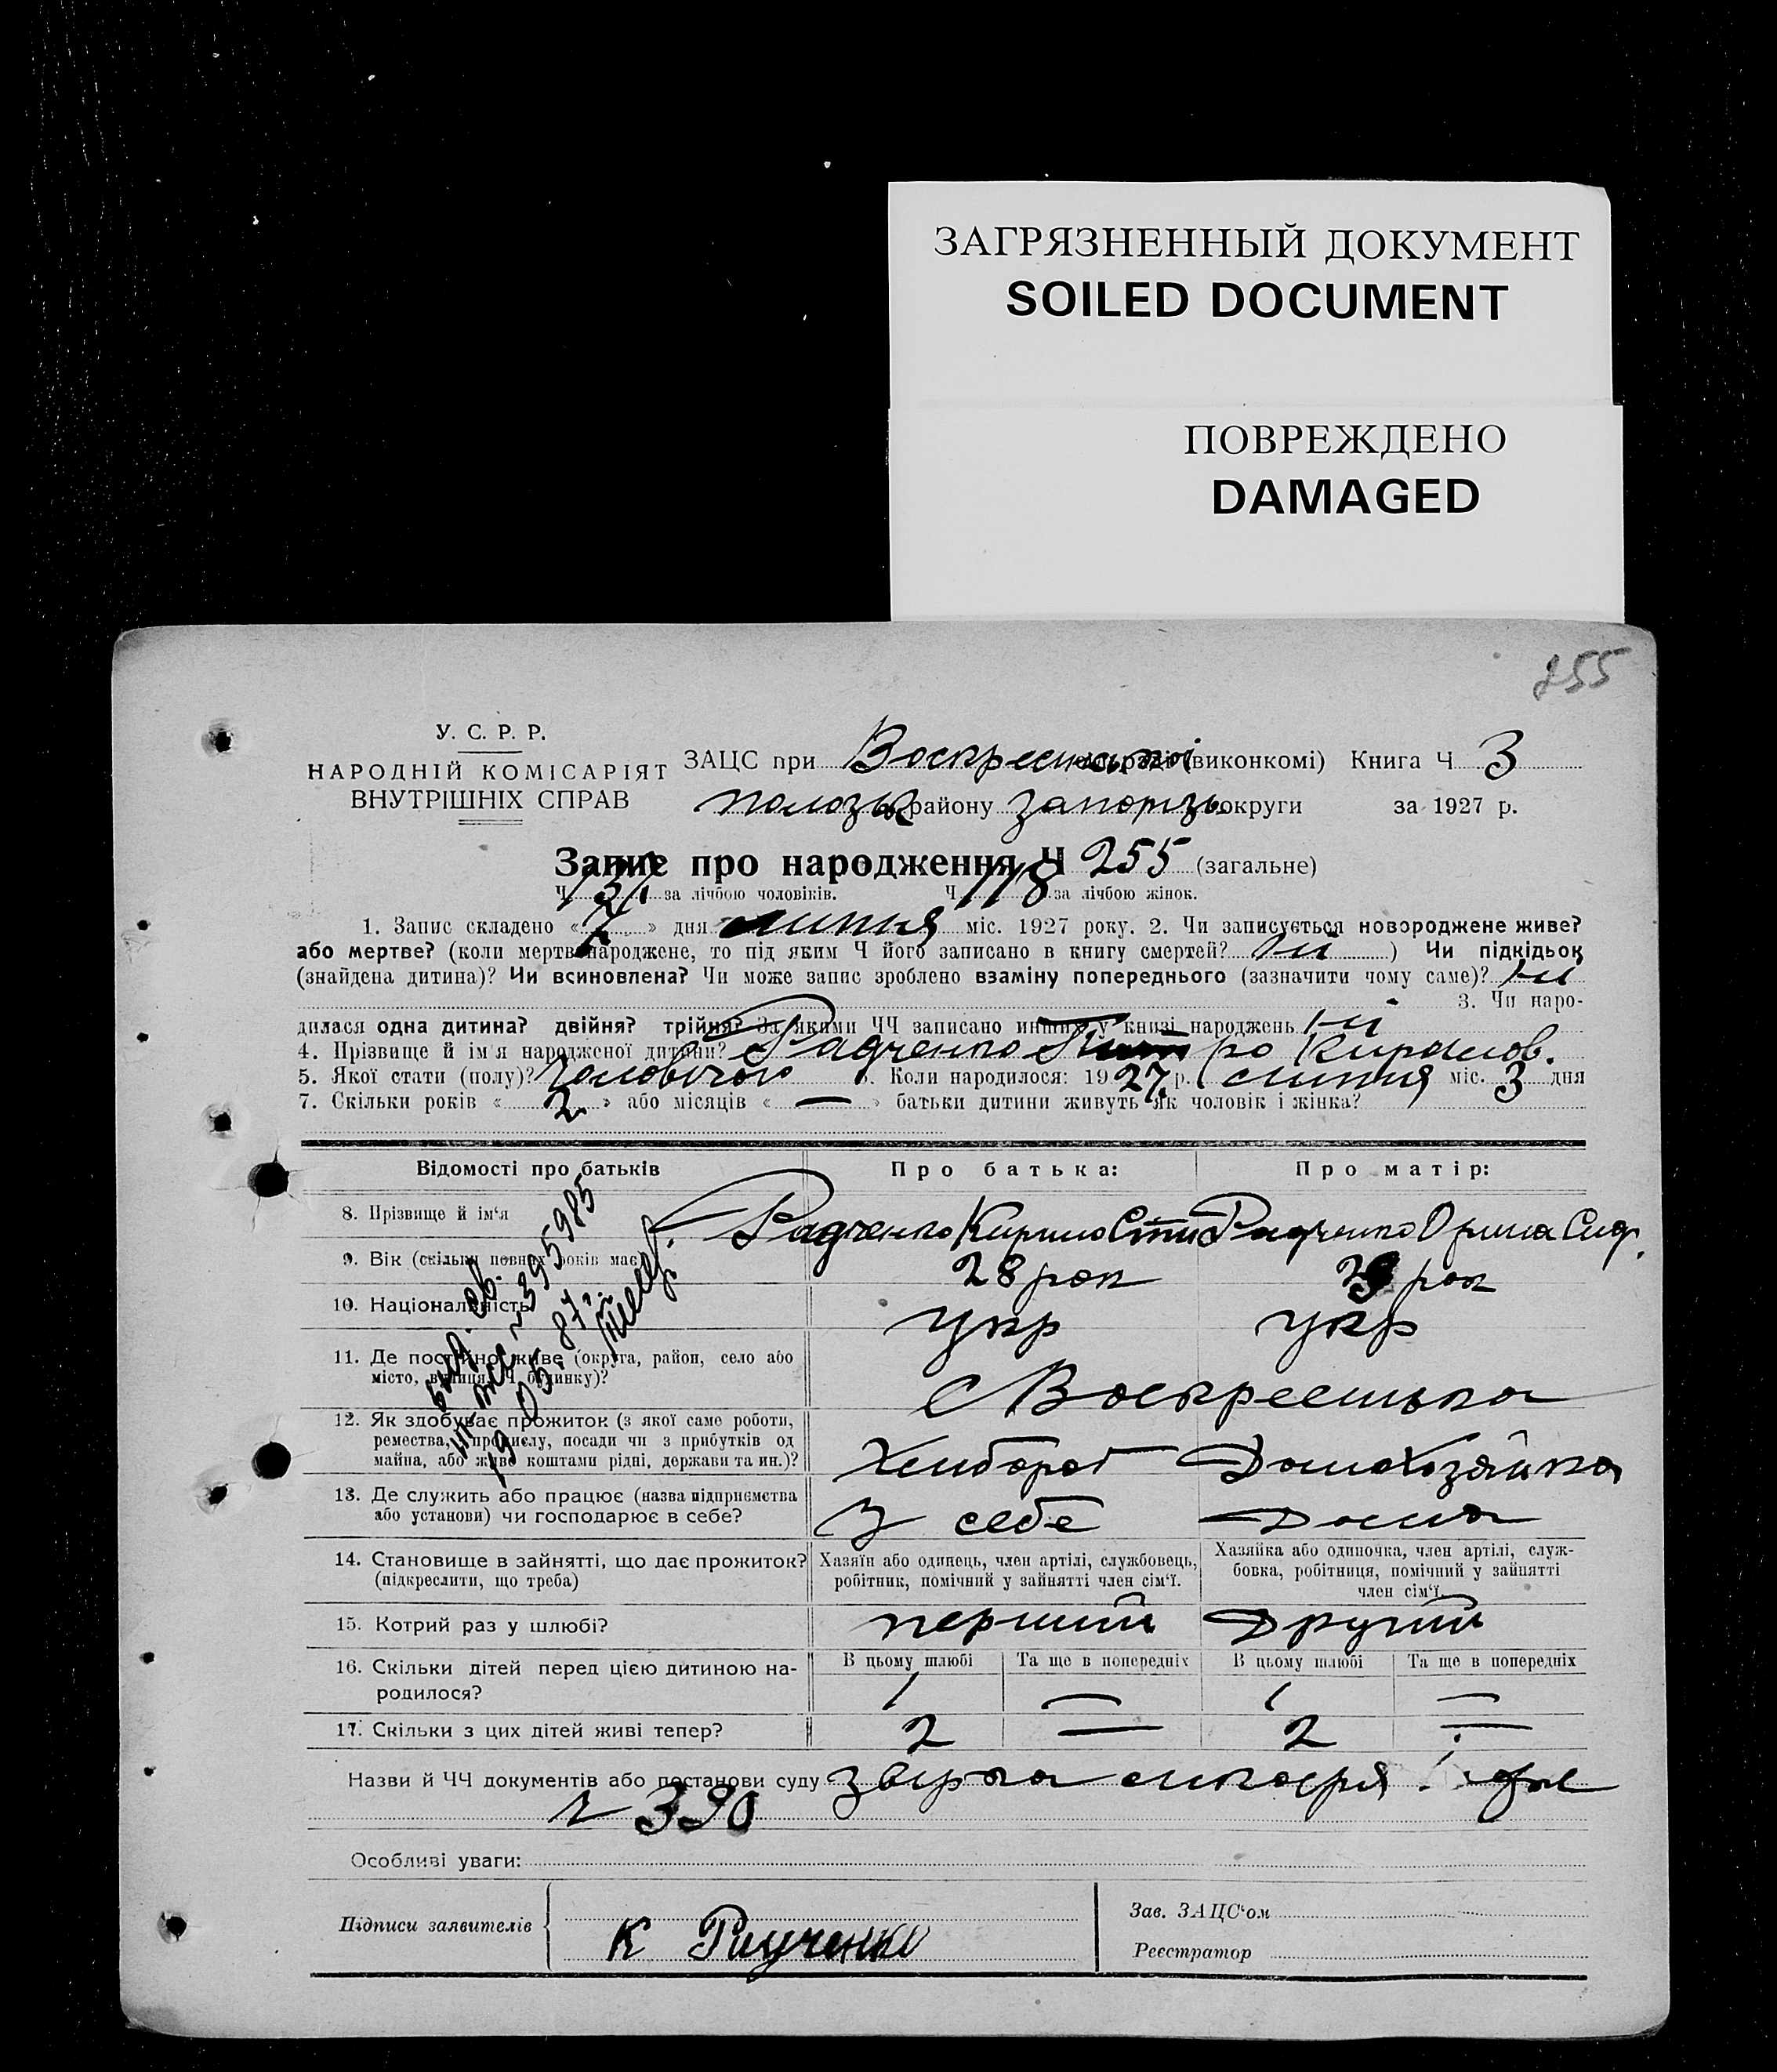 ЗАГРЯЗНЕННЫЙ ДОКУМЕНТ
SOILED DOCUMENT
ПОВРЕЖДЕНО
DAMAGED
255
У. С. Р. Р.
НАРОДНІЙ КОМІСАРІЯТ
ВНУТРІШНІХ СПРАВ
ЗАЦС при Воскресенської (виконкомі) Книга Ч 3
району округи за 1927 р.
Запис про народження Ч 255 (загальне)
Ч 137 за лічбою чоловіків. Ч 118 за лічбою жінок.
1. Запис складено « 7 » дня липня міс. 1927 року. 2. Чи записується новороджене живе?
або мертве? (коли мертвонароджене, то під яким Ч його записано в книгу смертей? ні ) Чи підкідьок
(знайдена дитина)? Чи всиновлена? Чи може запис зроблено взаміну попереднього (зазначити чому саме)? ні
3. Чи наро-
дилася одна дитина? двійня? трійня? За якими ЧЧ записано инших у книзі народжень ні
4. Прізвище й ім'я народженої дитини? Радченко
5. Якої стати (полу)? чоловічої 6. Коли народилося: 1927 р. липня міс. 3 дня
7. Скільки років « 2 » або місяців « — » батьки дитини живуть як чоловік і жінка?
Відомості про батьків Про батька: Про матір:
8. Прізвище й ім'я Радченко Кирило Радченко Орина Сид.
9. Вік (скільки повних років має) 28 рок рок
10. Національність укр укр
11. Де постійно живе (округа, район, село або
місто, вулиця, Ч будинку)? с Воскресенька
12. Як здобуває прожиток (з якої саме роботи,
ремества, промислу, посади чи з прибутків од
майна, або живе коштами рідні, держави та ин.)? Хлібороб Домохозяйка
13. Де служить або працює (назва підприємства
або установи) чи господарює в себе? У себе Дома
14. Становище в зайнятті, що дає прожиток?
(підкреслити, що треба)
Хазяїн або одинець, член артілі, службовець,
робітник, помічний у зайнятті член сім'ї.
Хазяйка або одиночка, член артілі, служ-
бовка, робітниця, помічний у зайнятті
член сім'ї.
15. Котрий раз у шлюбі? перший Другий
16. Скільки дітей перед цією дитиною на-
родилося?
В цьому шлюбі Та ще в попередніх В цьому шлюбі Та ще в попередніх
1 — 1 —
17. Скільки з цих дітей живі тепер? 2 — 2 —
Назви й ЧЧ документів або постанови суду
390
Особливі уваги:
Підписи заявителів К Радченко
Зав. ЗАЦС'ом
Реєстратор